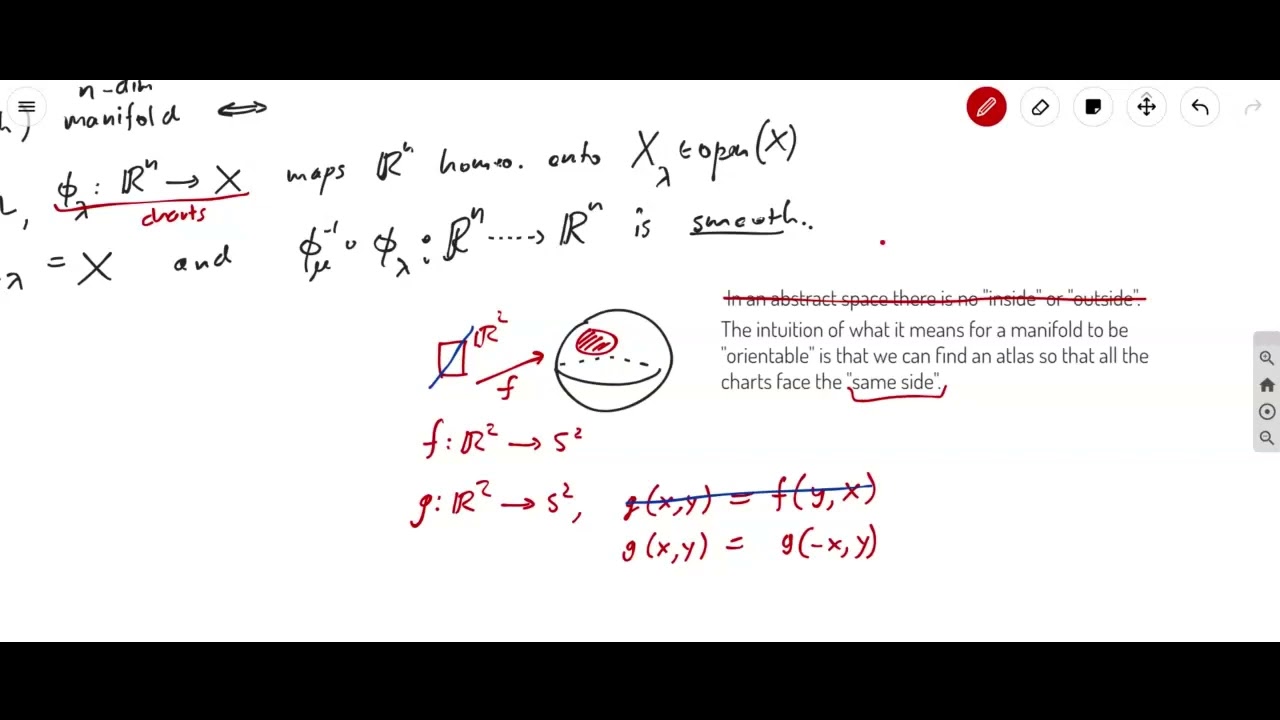 n-dim
manifold ⟺
ϕ_λ : ℝⁿ → X maps ℝⁿ homeo. onto X_λ ∈ open(X)
charts
_λ = X and ϕ_μ⁻¹ ∘ ϕ_λ : ℝⁿ ⇢ ℝⁿ is smooth..
ℝ²
f
In an abstract space there is no "inside" or "outside".
The intuition of what it means for a manifold to be
"orientable" is that we can find an atlas so that all the
charts face the "same side".
f : ℝ² → S²
g : ℝ² → S², g(x,y) = f(y,x)
g(x,y) = g(-x,y)